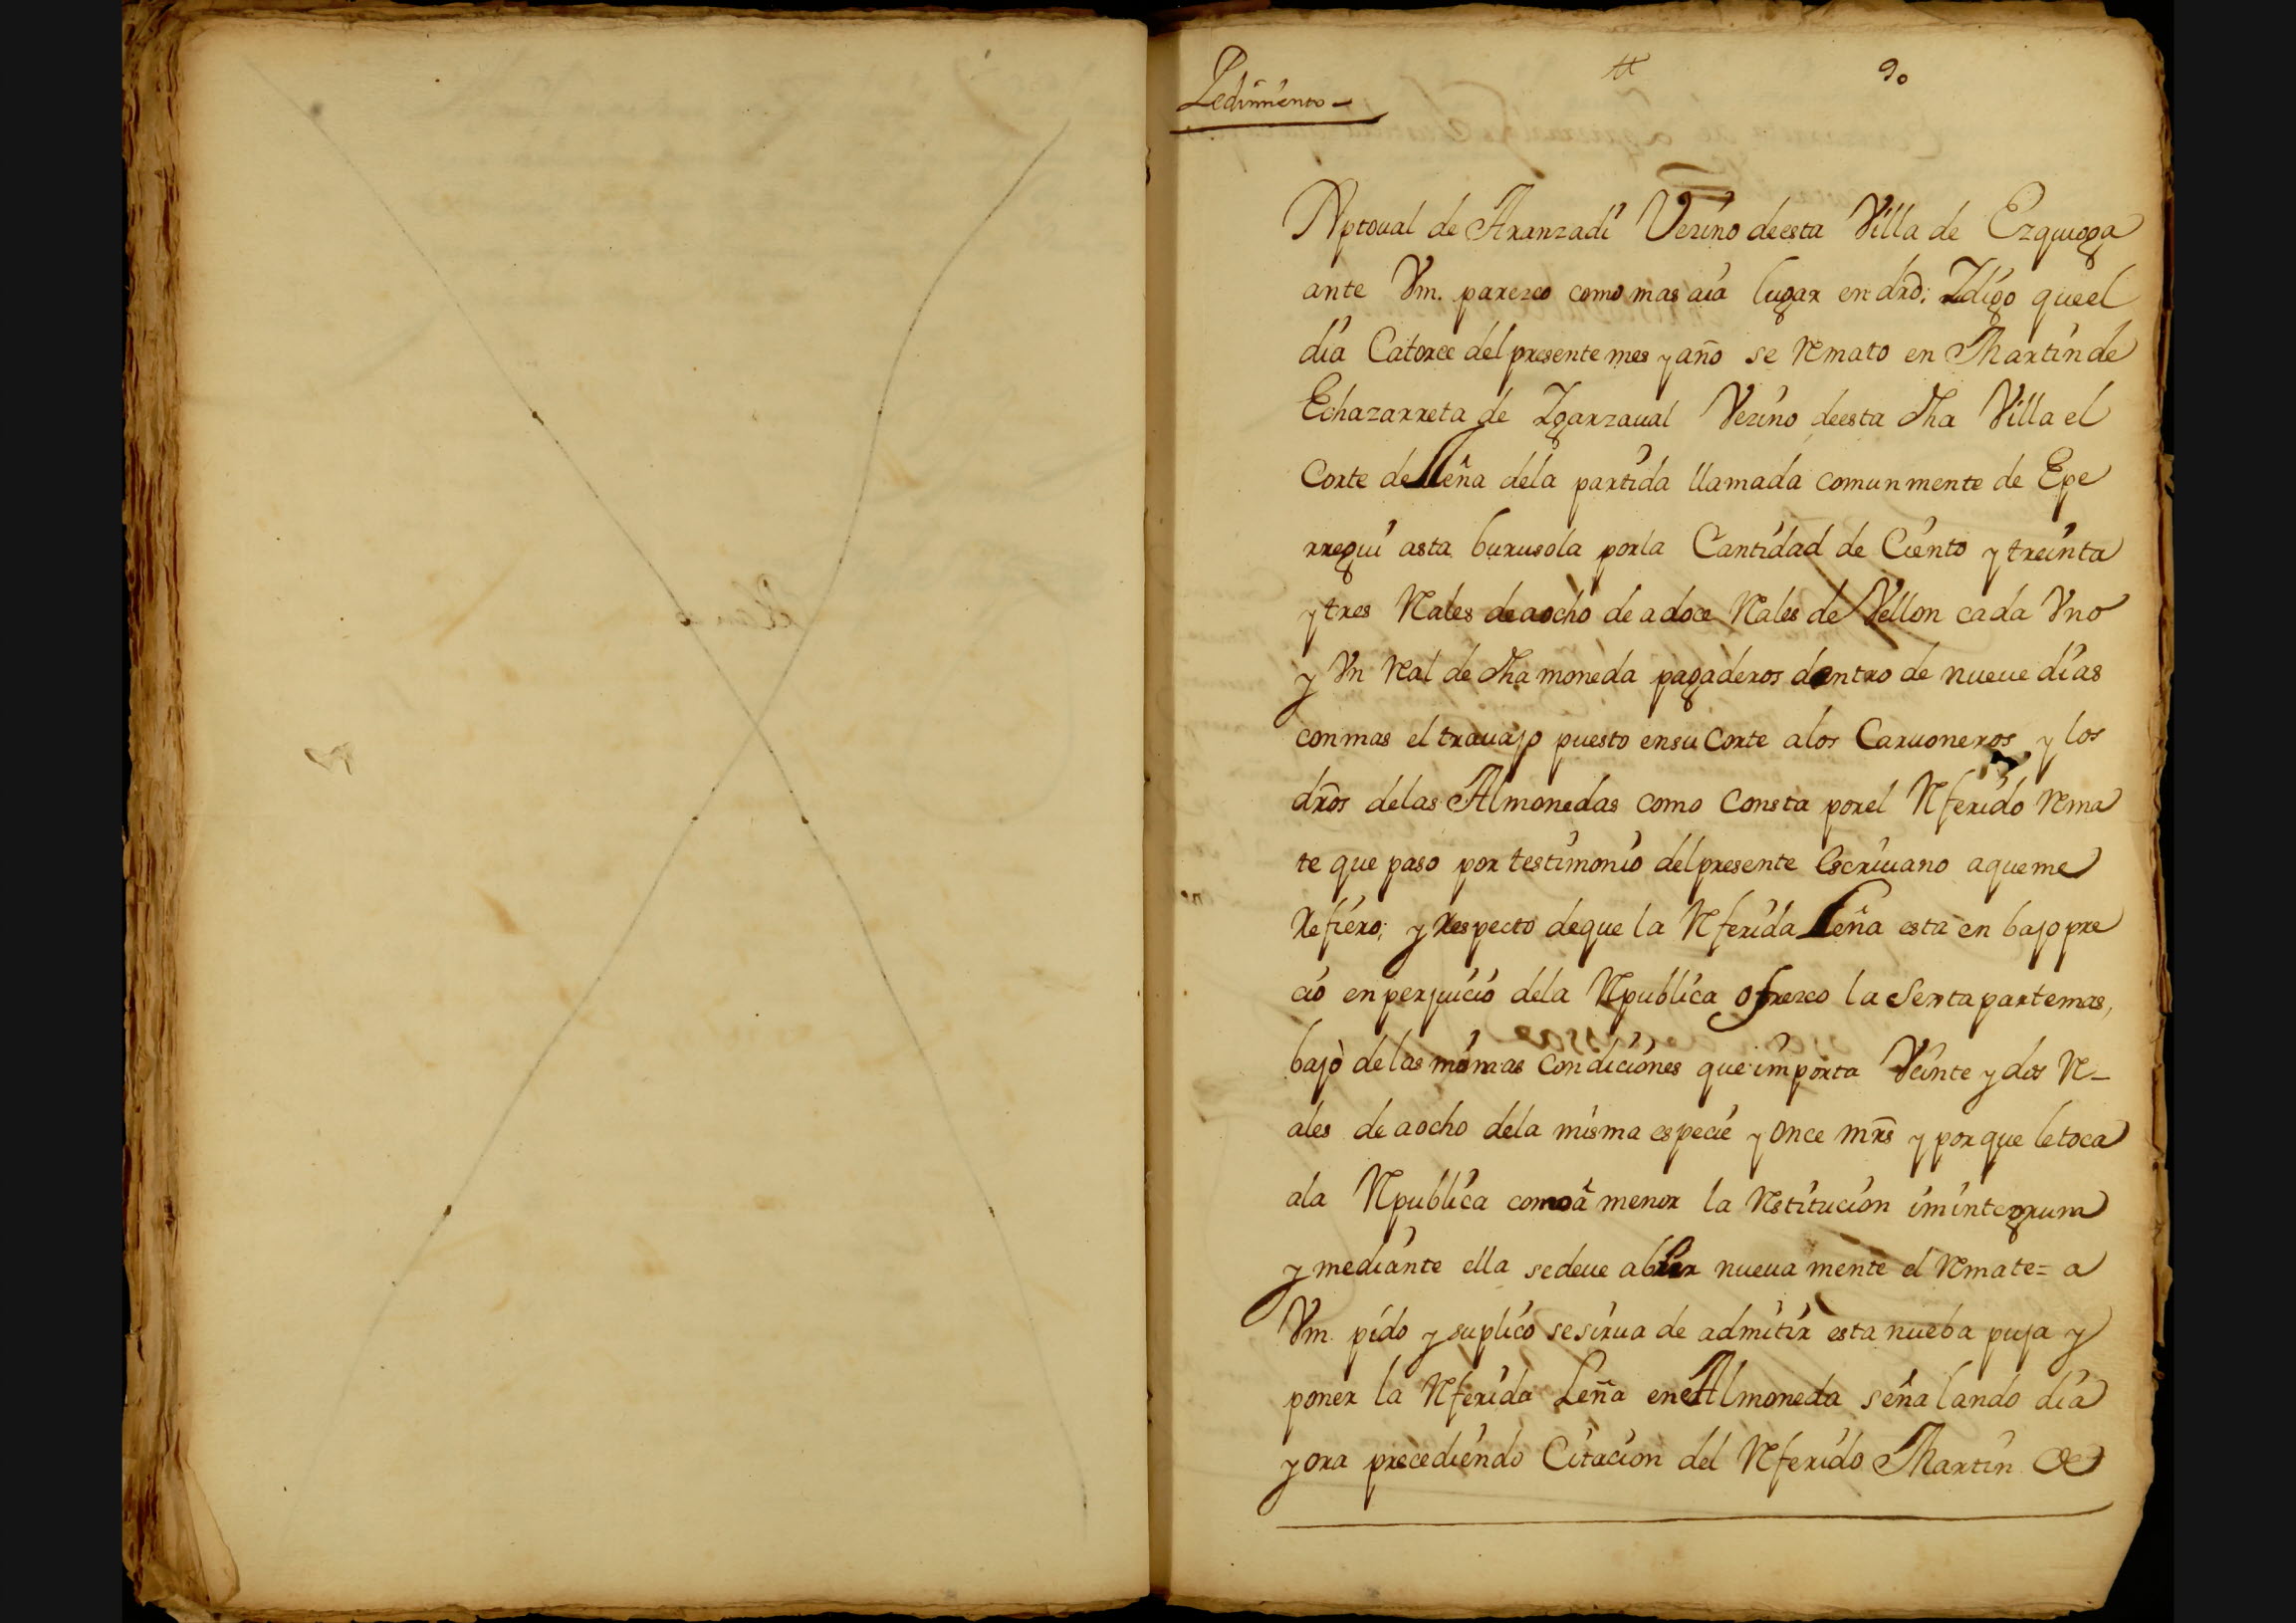 Pedimiento -
90
Xptoual de Aranzadi Vezino deesta Villa de Ezquioga
ante Vm. parezco como mas aia lugar en dro; Idigo queel
dia Catorce del presente mes y año se Remato en Martin de
Echazarreta de Igarzaual Vezino deesta dha Villa el
Corte de Leña dela partida llamada comunmente de Epe
rregui asta burusola porla Cantidad de Ciento ytreinta
ytres Rales deaocho de adoce Rales de Vellon cada Vno
y Vn Real de dha moneda pagaderos dentro de nueue dias
conmas el trauajo puesto ensu Corte alos Caruoneros y los
dros delas Almonedas como Consta porel Rferido Rema
te que paso por testimonio delpresente escriuano aqueme
Refiero; y Respecto deque la Rferida Leña esta en bajo pre
cio en perjuicio dela Republica ofrezco la Sexta parte mas,
bajo de las mismas Condiciones que importa Veinte y dos R-
ales de aocho dela misma especie y once mrs y por que letoca
ala Republica como â menor la Restitucion iminteorum
y mediante ella sedeue abrir nueua mente el Remate= a
Vm. pido y suplico sesirua de admitir esta nueba puja y
poner la Rferida Leña en Almoneda señalando dia
yora precediendo Citacion del Rferido Martin de